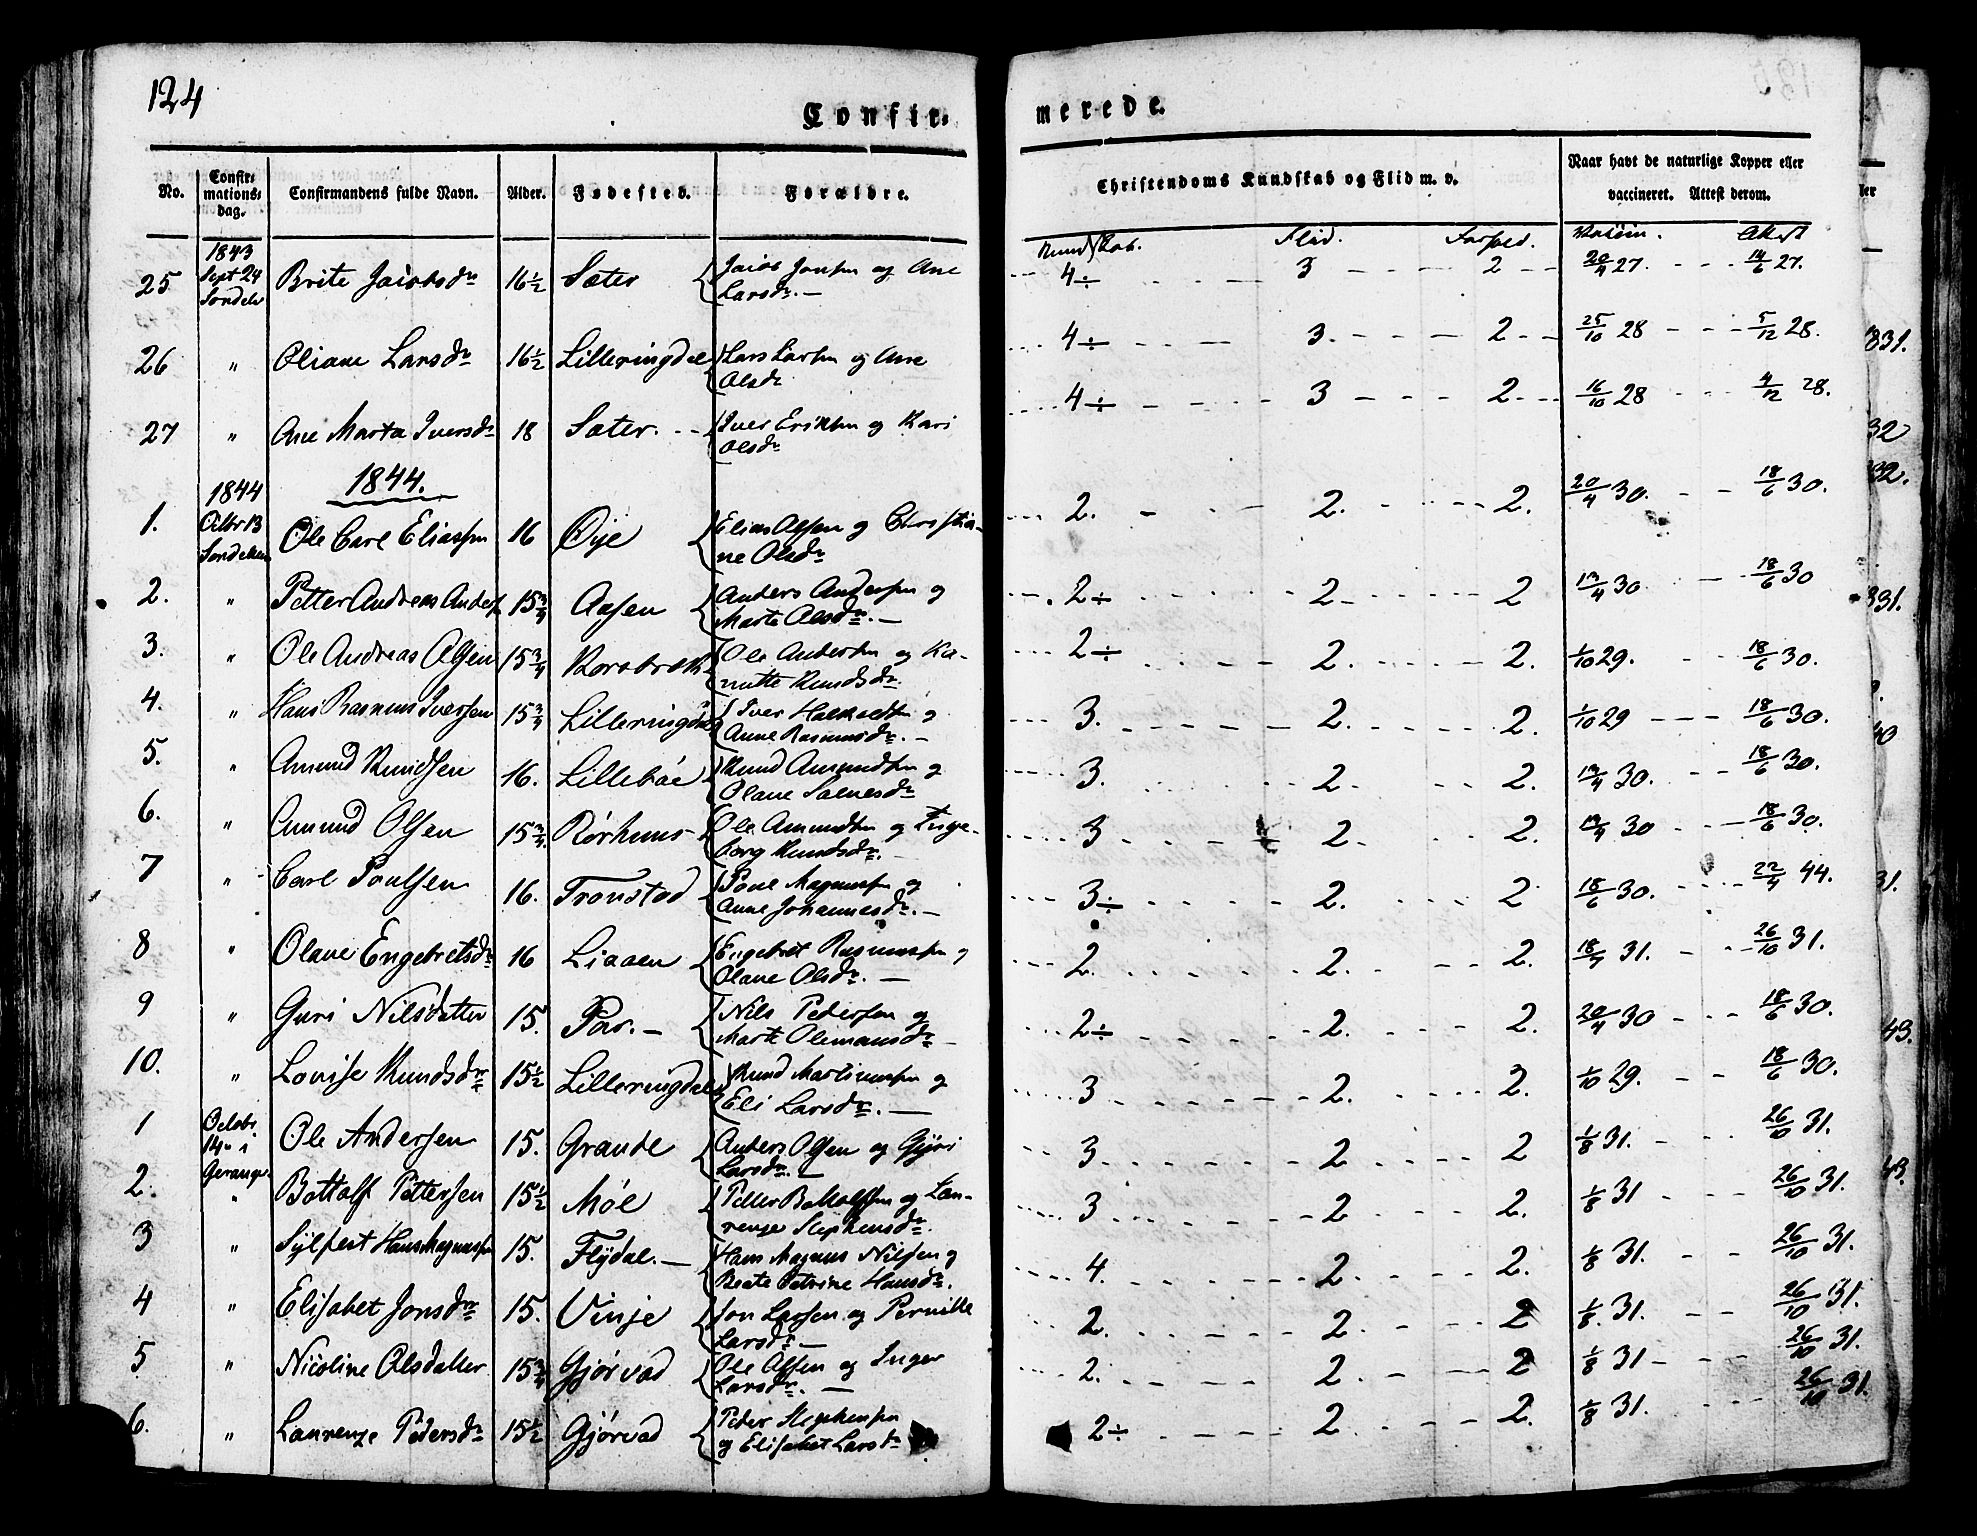 124
Confir-
merede.
No. Confir-mations-dag. Confirmandens fulde Navn. Alder. Fødested. Forældre. Christendoms Kundskab og Flid m. v. Naar havt de naturlige Kopper eller vaccineret. Attest derom.
Kundskab. Flid. Forhold. Vaksin. Attest
25 1843 Sept 24 Brite Jacobsdr 16½ Sæter Jacob Jonsen og Ane Larsdr. 4÷ 3 2 20/4 27. 14/6 27.
26 " Oliane Larsdr 16½ Lilleringdal Lars Larsen og Ane Olsdr 4÷ 3. 2 25/10 28 5/12 28.
27 " Ane Marta Iversdr 18 Sæter. Iver Eriksen og Kari Olsdr 4÷ 3 2 16/10 28 4/12 28.
1844.
1. 1844 Octbr 13 Ole Carl Eliassen 16 Øye Elias Olsen og Christiane Olsdr 2. 2. 2. 20/4 30. 18/6 30.
2. " Petter Andreas Anders 15¾ Aasen Anders Andersen og Marte Olsdr. 2÷ 2 2 19/4 30 18/6 30
3. " Ole Andreas Olsen 15¾ Korsbrek Ole Andersen og Kanutte Knudsdr. 2÷ 2. 2. 1/10 29. 18/6 30.
4. " Hans Rasmus Iversen 15¾ Lilleringdal Iver og Anne Rasmusdr. 3. 2. 2. 1/10 29 18/6 30.
5. " Amund Knudsen 16. Lillebøe Knud Amundsen og Olane 3. 2 2. 19/4 30. 18/6 30.
6. " Amund Olsen 15¾ Rørhuus Ole Amundsen og Ingeborg Knudsdr. 3 2. 2. 19/4 30 18/6 30.
7 " Carl Poulsen 16. Tronstad Poul Magnussen og Anne Johannesdr. 3÷ 2. 2 18/6 30. 22/4 44.
8 " Olave Engebretsdr 16 Liaaen Engebret Rasmussen og Olane Olsdr. 2. 2. 2. 18/7 31. 26/10 31.
9 " Guri Nilsdatter 15. Par. Nils Pedersen og Marte Olemansdr 2÷ 2. 2. 20/4 30 18/6 30.
10. " Lovise Knudsdr 15½ Lilleringdal Knud Martinussen og Eli Larsdr. 3 2. 2. 1/10 29. 18/6 30.
1 Octobr 14 i Geranger Ole Andersen 15. Grande Anders Olsen og Gjøri Larsdr. 3. 2 2 1/8 31. 26/10 31.
2. " Bottolf Pettersen 15½ Møe Petter Bottolfsen og Laurense Stephensdr. 3 2 2. 1/8 31 26/10 31.
3 " Sylfest Hans Magnussen 15. Flydal. Hans Magnus Nilsen og Beate Petrine Hansdr. 4. 2. 2. 1/8 31. 26/10 31.
4 " Elisabet Jonsdr 15. Vinje Jon Larsen og Pernille Larsdr 2. 2. 2 1/8. 31. 26/10 31.
5 " Nicoline Olsdatter 15¾ Gjørvad Ole Olsen og Inger Larsdr. 2. 2 2 1/8 31 26/10 31.
6. " Laurense Pedersdr 15½ Gjørvad Peder Stephensen og Elisabet Larsdr 2÷ 2 2. 1/8 31. 26/10 31.